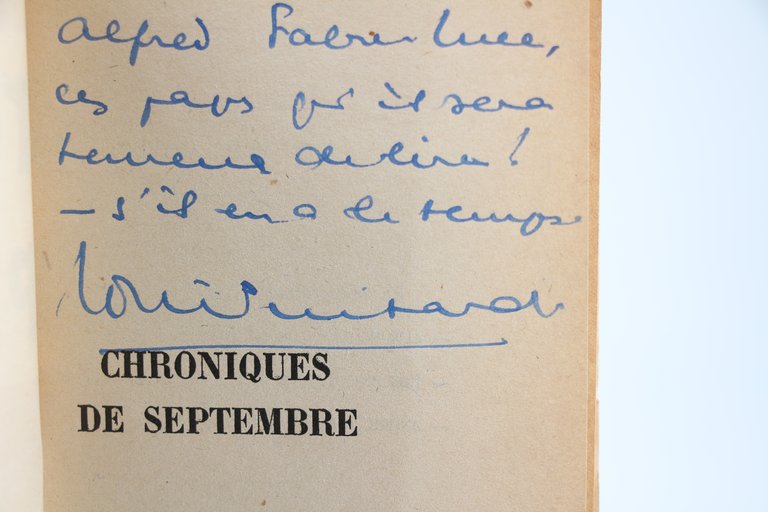 Alfred Fabre-Luce,
ces pages qu'il sera
de lire !
— s'il en a le temps
Louis Guitard
CHRONIQUES
DE SEPTEMBRE